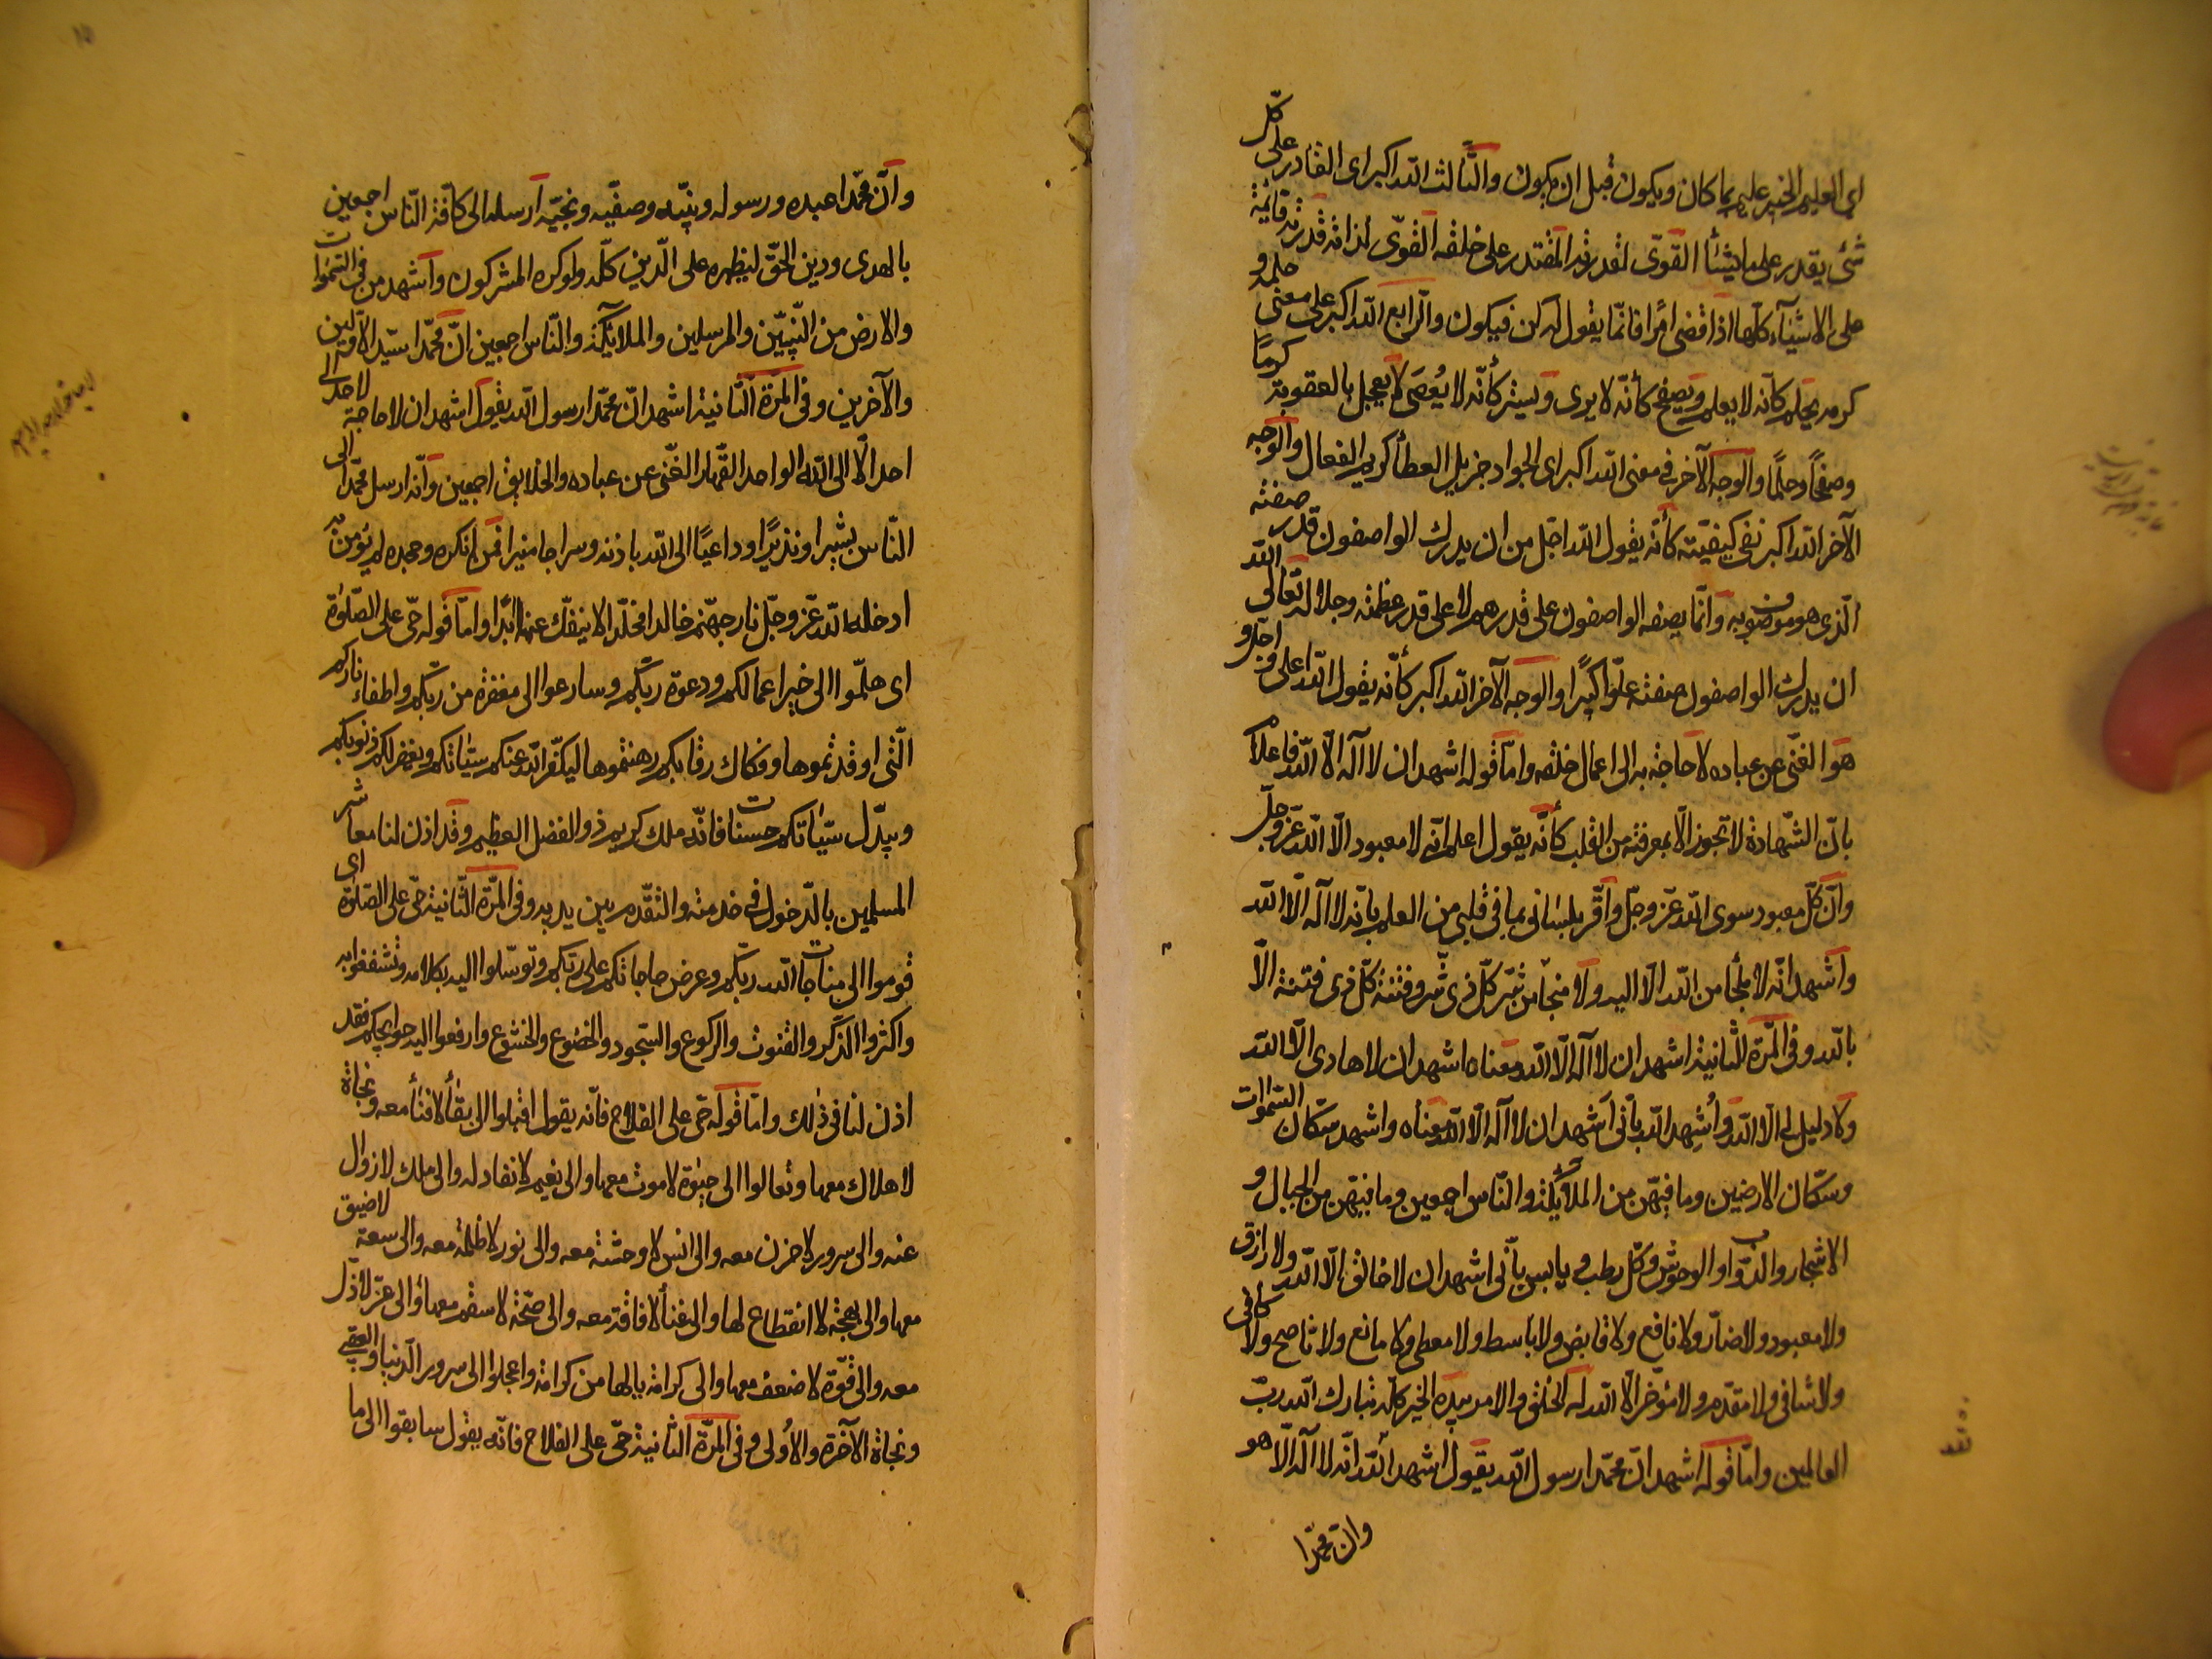 اى العليم الخبير عليم بما كان ويكون قبل ان يكون والثالث الله اكبر اى القادر على كلّ
شئ يقدر على ما يشاء القوىّ لقدرته المقتدر على خلقه القوىّ لذاته قدرته قائمة
على الاشيآء كلّها اذا قضى امرا فانّما يقول له كن فيكون والرّابع الله اكبر على معنى حلمه و
كرمه يحلم كانّه لا يعلم ويصفح كأنّه لا يرى ويستر كأنّه لا يُعصى لا يعجل بالعقوبة كرمًا
وصفحًا وحلمًا والوجه الآخر فى معنى الله اكبر اى الجواد جزيل العطاء كريم الفعال والوجه
الآخر الله اكبر نفى كيفيّته كأنّه يقول الله اجلّ من ان يدرك الواصفون قدر صفته
الّذى هو موصوف به وانّما يصفه الواصفون على قدرهم لا على قدر عظمته وجلاله تعالى الله
ان يدرك الواصفون صفته علوّا كبيرًا والوجه الآخر الله اكبر كأنّه يقول الله اعلى واجلّ و
هو الغنىّ عن عباده لا حاجة به الى اعمال خلقه وامّا قوله اشهد ان لا اله الّا الله فاعلام
بانّ الشّهادة لا تجوز الّا بمعرفته من القلب كأنّه يقول اعلم انّه لا معبود الّا الله عزّ وجلّ
وانّ كلّ معبود سوى الله عزّ وجلّ واقرّ بلسانى بما فى قلبى من العلم بانّه لا اله الّا الله
واشهد انّه لا ملجأ من الله الّا اليه ولا منجا من شرّ كلّ ذى شرّ وفتنة كلّ ذى فتنة الّا
بالله وفى المرّة الثانية اشهد ان لا اله الّا الله ومعناه اشهد ان لا هادى الّا الله
ولا دليل لى الّا الله وأشهد الله بأنّى اشهد ان لا اله الّا الله معناه واشهد سكّان السّموات
وسكّان الارضين وما فيهنّ من الملآئكة والنّاس اجمعين وما فيهنّ من الجبال و
الاشجار والدّوابّ والوحوش وكلّ رطب ويابس بأنّى اشهد ان لا خالق الّا الله ولا رازق
ولا معبود ولا ضارّ ولا نافع ولا قابض ولا باسط ولا معطى ولا مانع ولا ناصح ولا كافى
ولا شافى ولا مقدّم ولا مؤخّر الّا الله له الخلق والامر بيده الخير كلّه تبارك الله ربّ
العالمين وامّا قوله اشهد انّ محمّدا رسول الله يقول اشهد الله انّه لا اله الّا هو
وانّ محمّدا
وانّ محمّدا عبده ورسوله ونبيّه وصفيّه ونجيّه ارسله الى كافّة النّاس اجمعين
بالهدى ودين الحقّ ليظهره على الّدين كلّه ولو كره المشركون واشهد من فى السّموات
والارض من النّبيّين والمرسلين والملائكة والنّاس اجمعين انّ محمّدا سيّد الاوّلين
والآخرين وفى المرّة الثّانية اشهد انّ محمّدا رسول الله يقول اشهد ان لا حاجة لاحد الى
احد الّا الى الله الواحد القهّار الغنّى عن عباده والخلايق اجمعين وانّه ارسل محمّدا الى
النّاس بشيرا ونذيرًا وداعيًا الى الله باذنه وسراجا منيرا فمن انكره وجحده لم يؤمن به
ادخله الله عزّ وجلّ نار جهنّم خالدا مخلّدا لا ينفكّ عنها ابدًا وامّا قوله حىّ على الصّلوة
اى هلمّوا الى خير اعمالكم ودعوة ربّكم وسارعوا الى مغفرة من ربّكم واطفاء ناركم
الّتى اوقدتموها وفكاك رقابكم رهنتموها ليكفّر الله عنكم سيّئاتكم ويغفر لكم ذنوبكم
ويبدّل سيّئاتكم حسنات فانّه ملك كريم ذو الفضل العظيم وقد اذن لنا معاشر
المسلمين بالدّخول فى خدمته والتقدّم بين يديه وفى المرّة الثّانية حىّ على الصّلوة اى
قوموا الى مناجات الله ربّكم وعرض حاجاتكم على ربّكم وتوسّلوا اليه بكلامه وتشفّعوا به
واكثروا الذّكر والقنوت والركوع والسّجود والخضوع والخشوع وارفعوا اليه حوايجكم فقد
اذن لنا فى ذلك وامّا قوله حىّ على الفلاح فانّه يقول اقبلوا الى بقاء لا فناء معه ونجاة
لا هلاك معها وتعالوا الى حيوة لا موت معها والى نعيم لا نفاد له والى ملك لا زوال
عنه والى سرور لا حزن معه والى انس لا وحشة معه والى نور لا ظلمة معه والى سعة لا ضيق
معها والى بهجة لا انقطاع لها والى غناء لا فاقة معه والى صحّة لا سقم معها والى عزّ لا ذلّ
معه والى قوّة لا ضعف معها والى كرامة يا لها من كرامة واعجلوا الى سرور الدّنيا والعقبى
ونجاة الآخرة والاُولى وفى المرّة الثانية حىّ على الفلاح فانّه يقول سابقوا الى ما